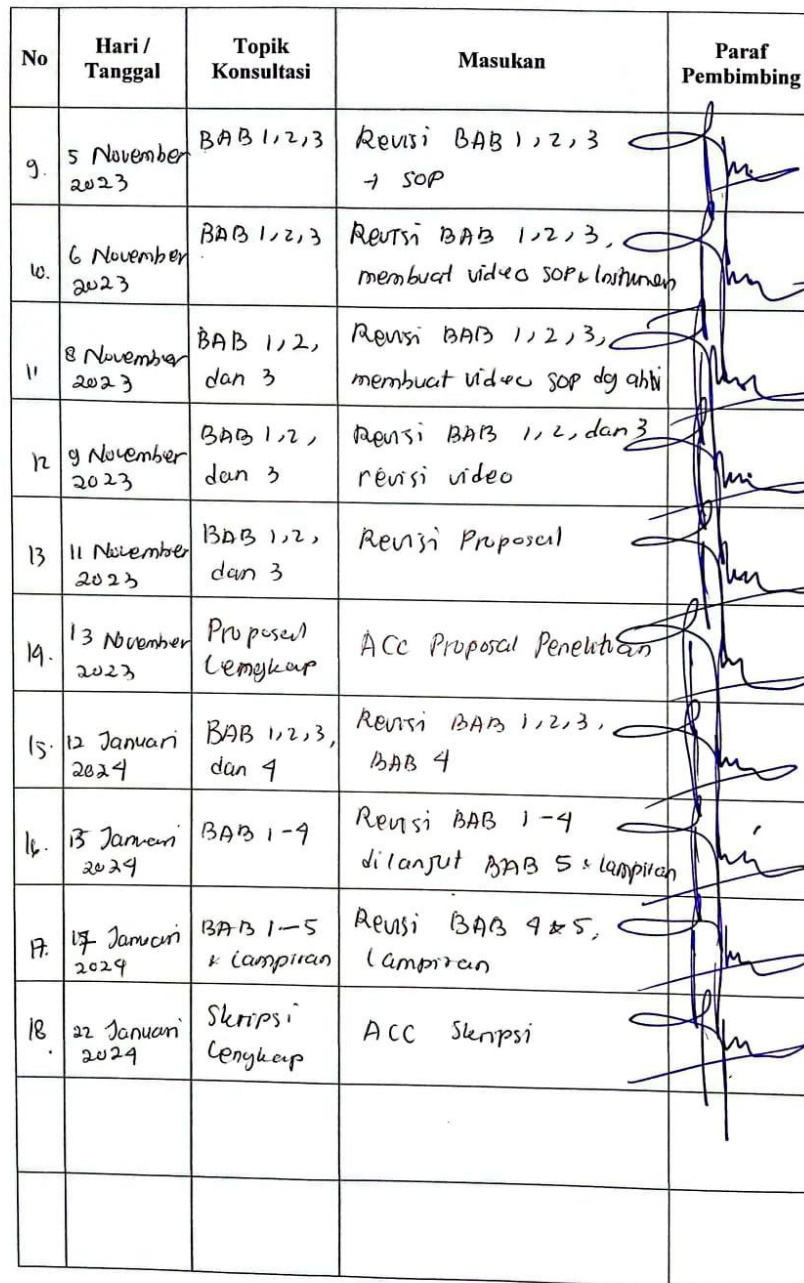 No
Hari / Tanggal
Topik Konsultasi
Masukan
Paraf Pembimbing
9.
5 November
2023
BAB 1,2,3
Revisi BAB 1,2,3
→ SOP
10.
6 November
2023
BAB 1,2,3
Revisi BAB 1,2,3,
membuat video SOP & Instrumen
11
8 November
2023
BAB 1,2,
dan 3
Revisi BAB 1,2,3,
membuat video SOP dg ahli
12
9 November
2023
BAB 1,2,
dan 3
Revisi BAB 1,2, dan 3
revisi video
13
11 November
2023
BAB 1,2,
dan 3
Revisi Proposal
14.
13 November
2023
Proposal
Lengkap
ACC Proposal Penelitian
15.
12 Januari
2024
BAB 1,2,3,
dan 4
Revisi BAB 1,2,3,
BAB 4
16.
15 Januari
2024
BAB 1-4
Revisi BAB 1-4
dilanjut BAB 5 & lampiran
17.
17 Januari
2024
BAB 1-5
& lampiran
Revisi BAB 4 & 5,
lampiran
18.
22 Januari
2024
Skripsi
Lengkap
ACC Skripsi